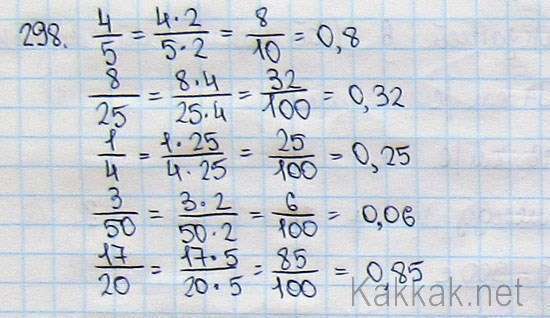 298. 4/5 = 4·2/5·2 = 8/10 = 0,8
8/25 = 8·4/25·4 = 32/100 = 0,32
1/4 = 1·25/4·25 = 25/100 = 0,25
3/50 = 3·2/50·2 = 6/100 = 0,06
17/20 = 17·5/20·5 = 85/100 = 0,85
Kakkak.net